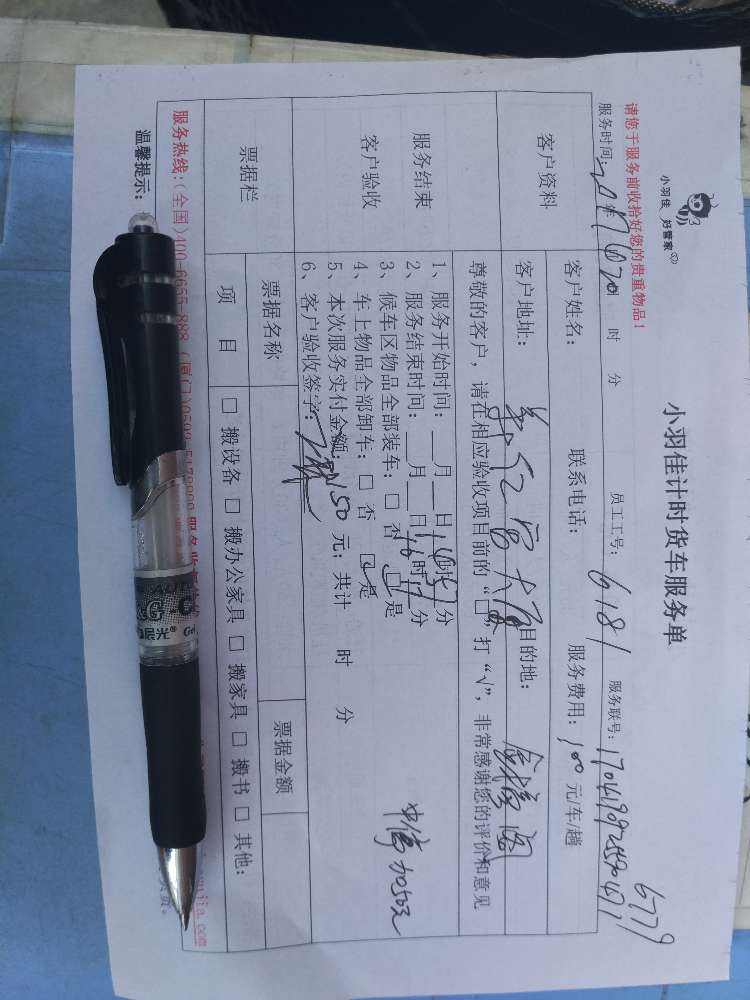 小羽佳 好管家
小羽佳计时货车服务单
6779
请您于服务前收拾好您的贵重物品！
服务时间: 2017年 4 20 时 分 员工工号: 6181 服务联号:
客户资料
客户姓名: 联系电话: 服务费用: 100 元/车/趟
客户地址: 大厦 目的地:
尊敬的客户，请在相应验收项目前的“□”打“√”，非常感谢您的评价和意见
服务结束
客户验收
1、服务开始时间: 月 日 14时 51分
2、服务结束时间: 月 日 16时 17分
3、候车区物品全部装车: □ 否 □ 是
4、车上物品全部卸车: □ 否 □ 是
5、本次服务实付金额: 150 元; 共计 时 分
6、客户验收签字:
中停加50元
票据栏
票据名称 票据金额
项 目 □ 搬设备 □ 搬办公家具 □ 搬家具 □ 搬书 □ 其他:
服务热线:(全国)400-6655-888
温馨提示:
G
晨光® Gel